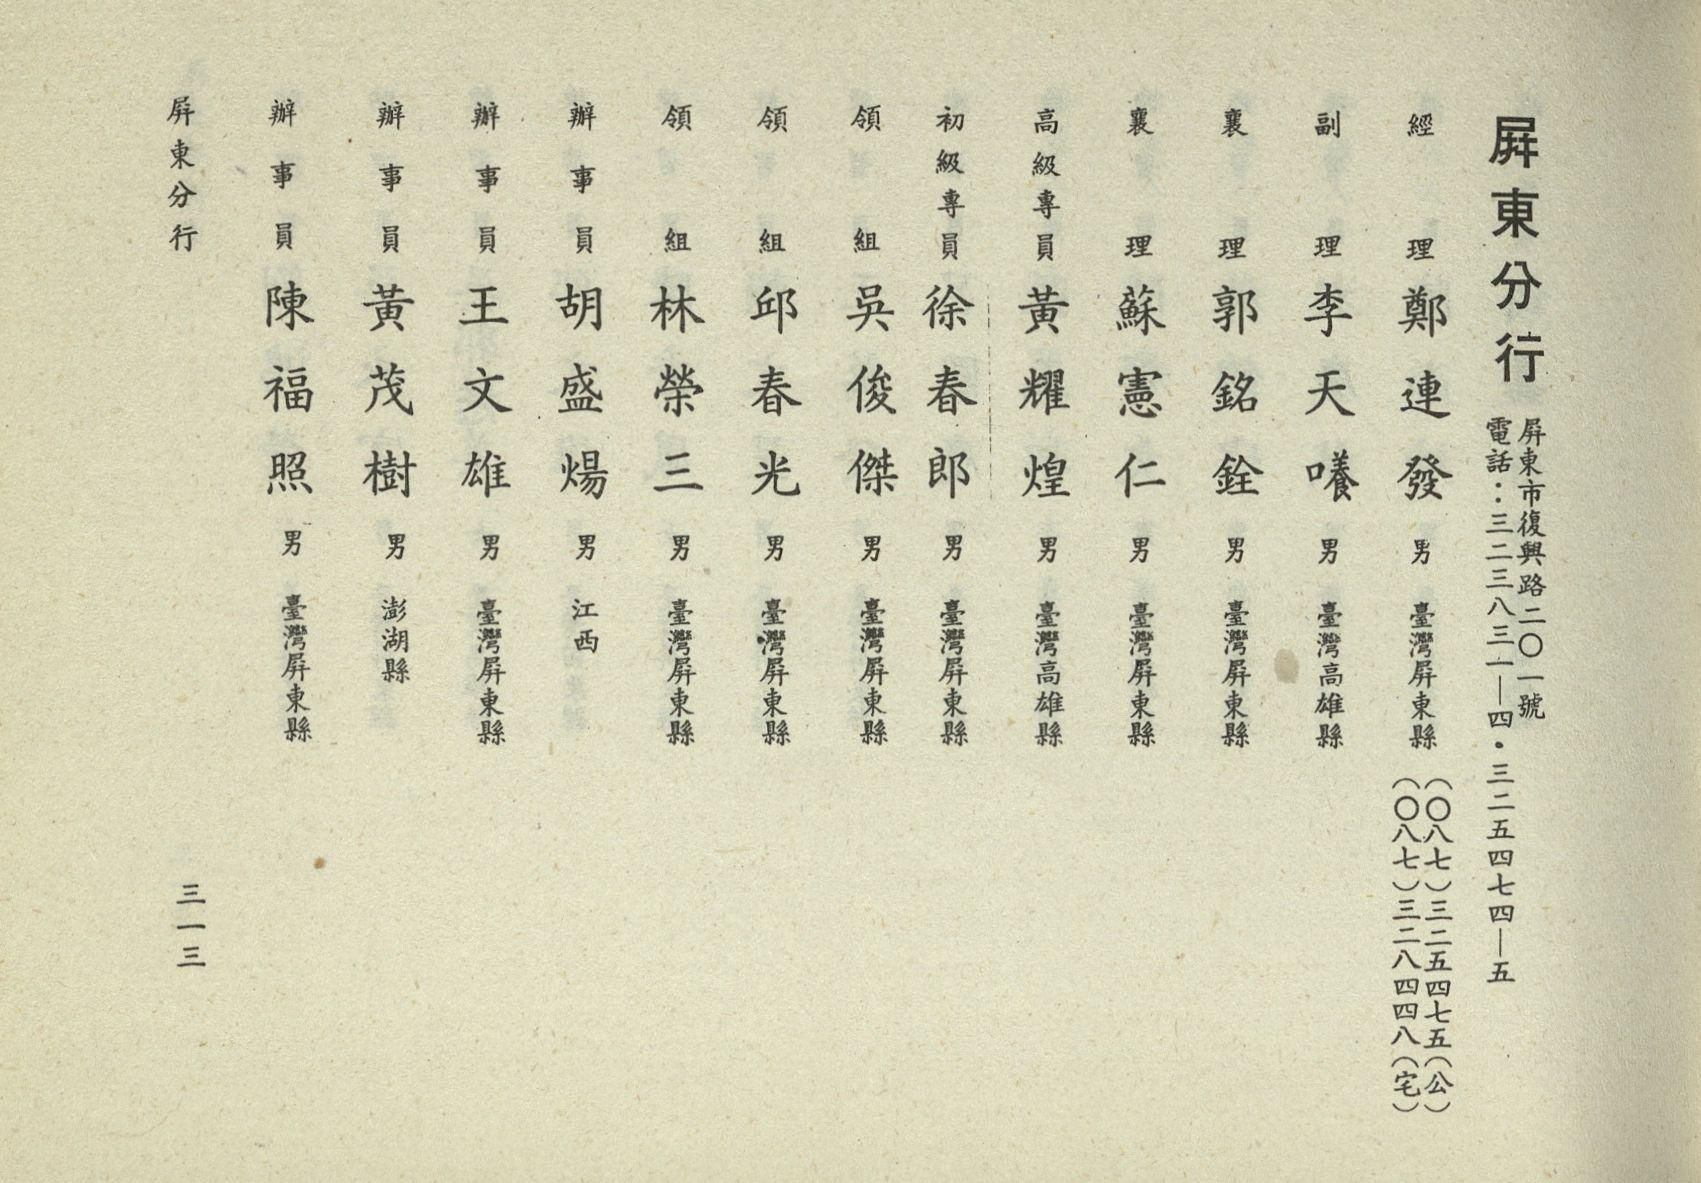 屏東分行
屏東市復興路二〇一號
電話：三二三八三一—四・三二五四七四—五
經理 鄭連發 男 臺灣屏東縣 （〇八七）三二五四七五（公）
（〇八七）三二八四四八（宅）
副理 李天㗲 男 臺灣高雄縣
襄理 郭銘銓 男 臺灣屏東縣
襄理 蘇憲仁 男 臺灣屏東縣
高級專員 黃耀煌 男 臺灣高雄縣
初級專員 徐春郎 男 臺灣屏東縣
領組 吳俊傑 男 臺灣屏東縣
領組 邱春光 男 臺灣屏東縣
領組 林榮三 男 臺灣屏東縣
辦事員 胡盛煬 男 江西
辦事員 王文雄 男 臺灣屏東縣
辦事員 黃茂樹 男 澎湖縣
辦事員 陳福照 男 臺灣屏東縣
屏東分行
三一三